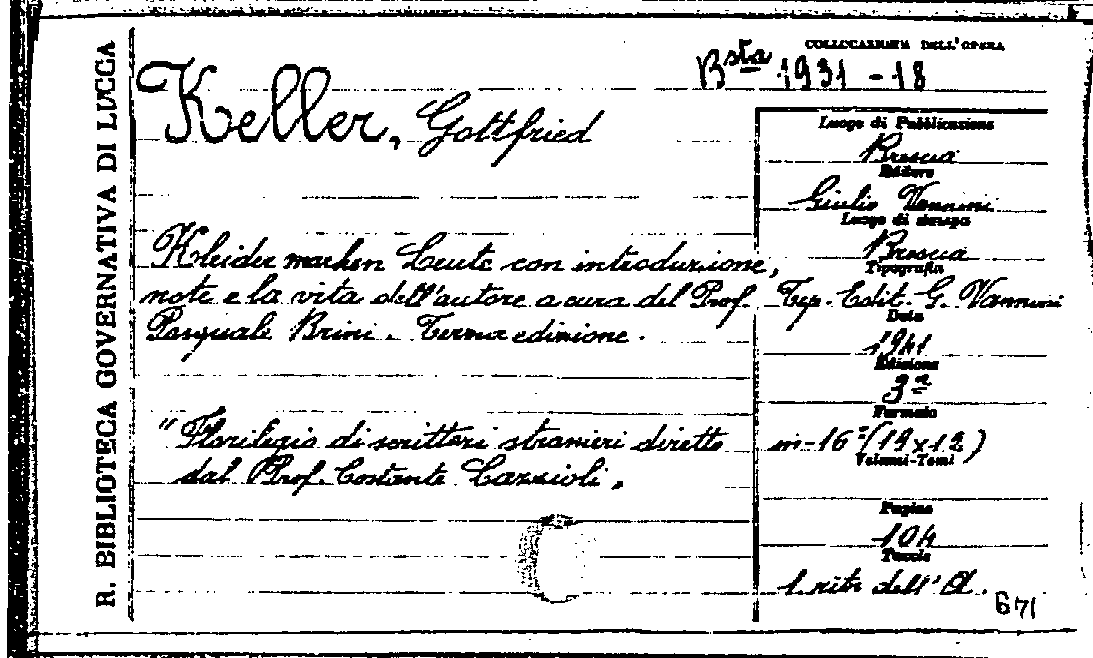 R. BIBLIOTECA GOVERNATIVA DI LUCCA
COLLOCAZIONE DELL'OPERA
Bsta 1931-18
Keller, Gottfried
Kleider machen Leute con introduzione,
note e la vita dell'autore a cura del Prof.
Pasquale Brini. Terza edizione.
"Florilegio di scrittori stranieri diretto
dal Prof. Costante Lazzioli„
Luogo di Pubblicazione
Brescia
Editore
Giulio Vannini
Luogo di stampa
Brescia
Tipografia
Tip. Edit. G. Vannini
Data
1941
Edizione
3ª
Formato
in-16° (19x12)
Volumi-Tomi
Pagine
104
Tavole
1 ritr. dell'A.
671